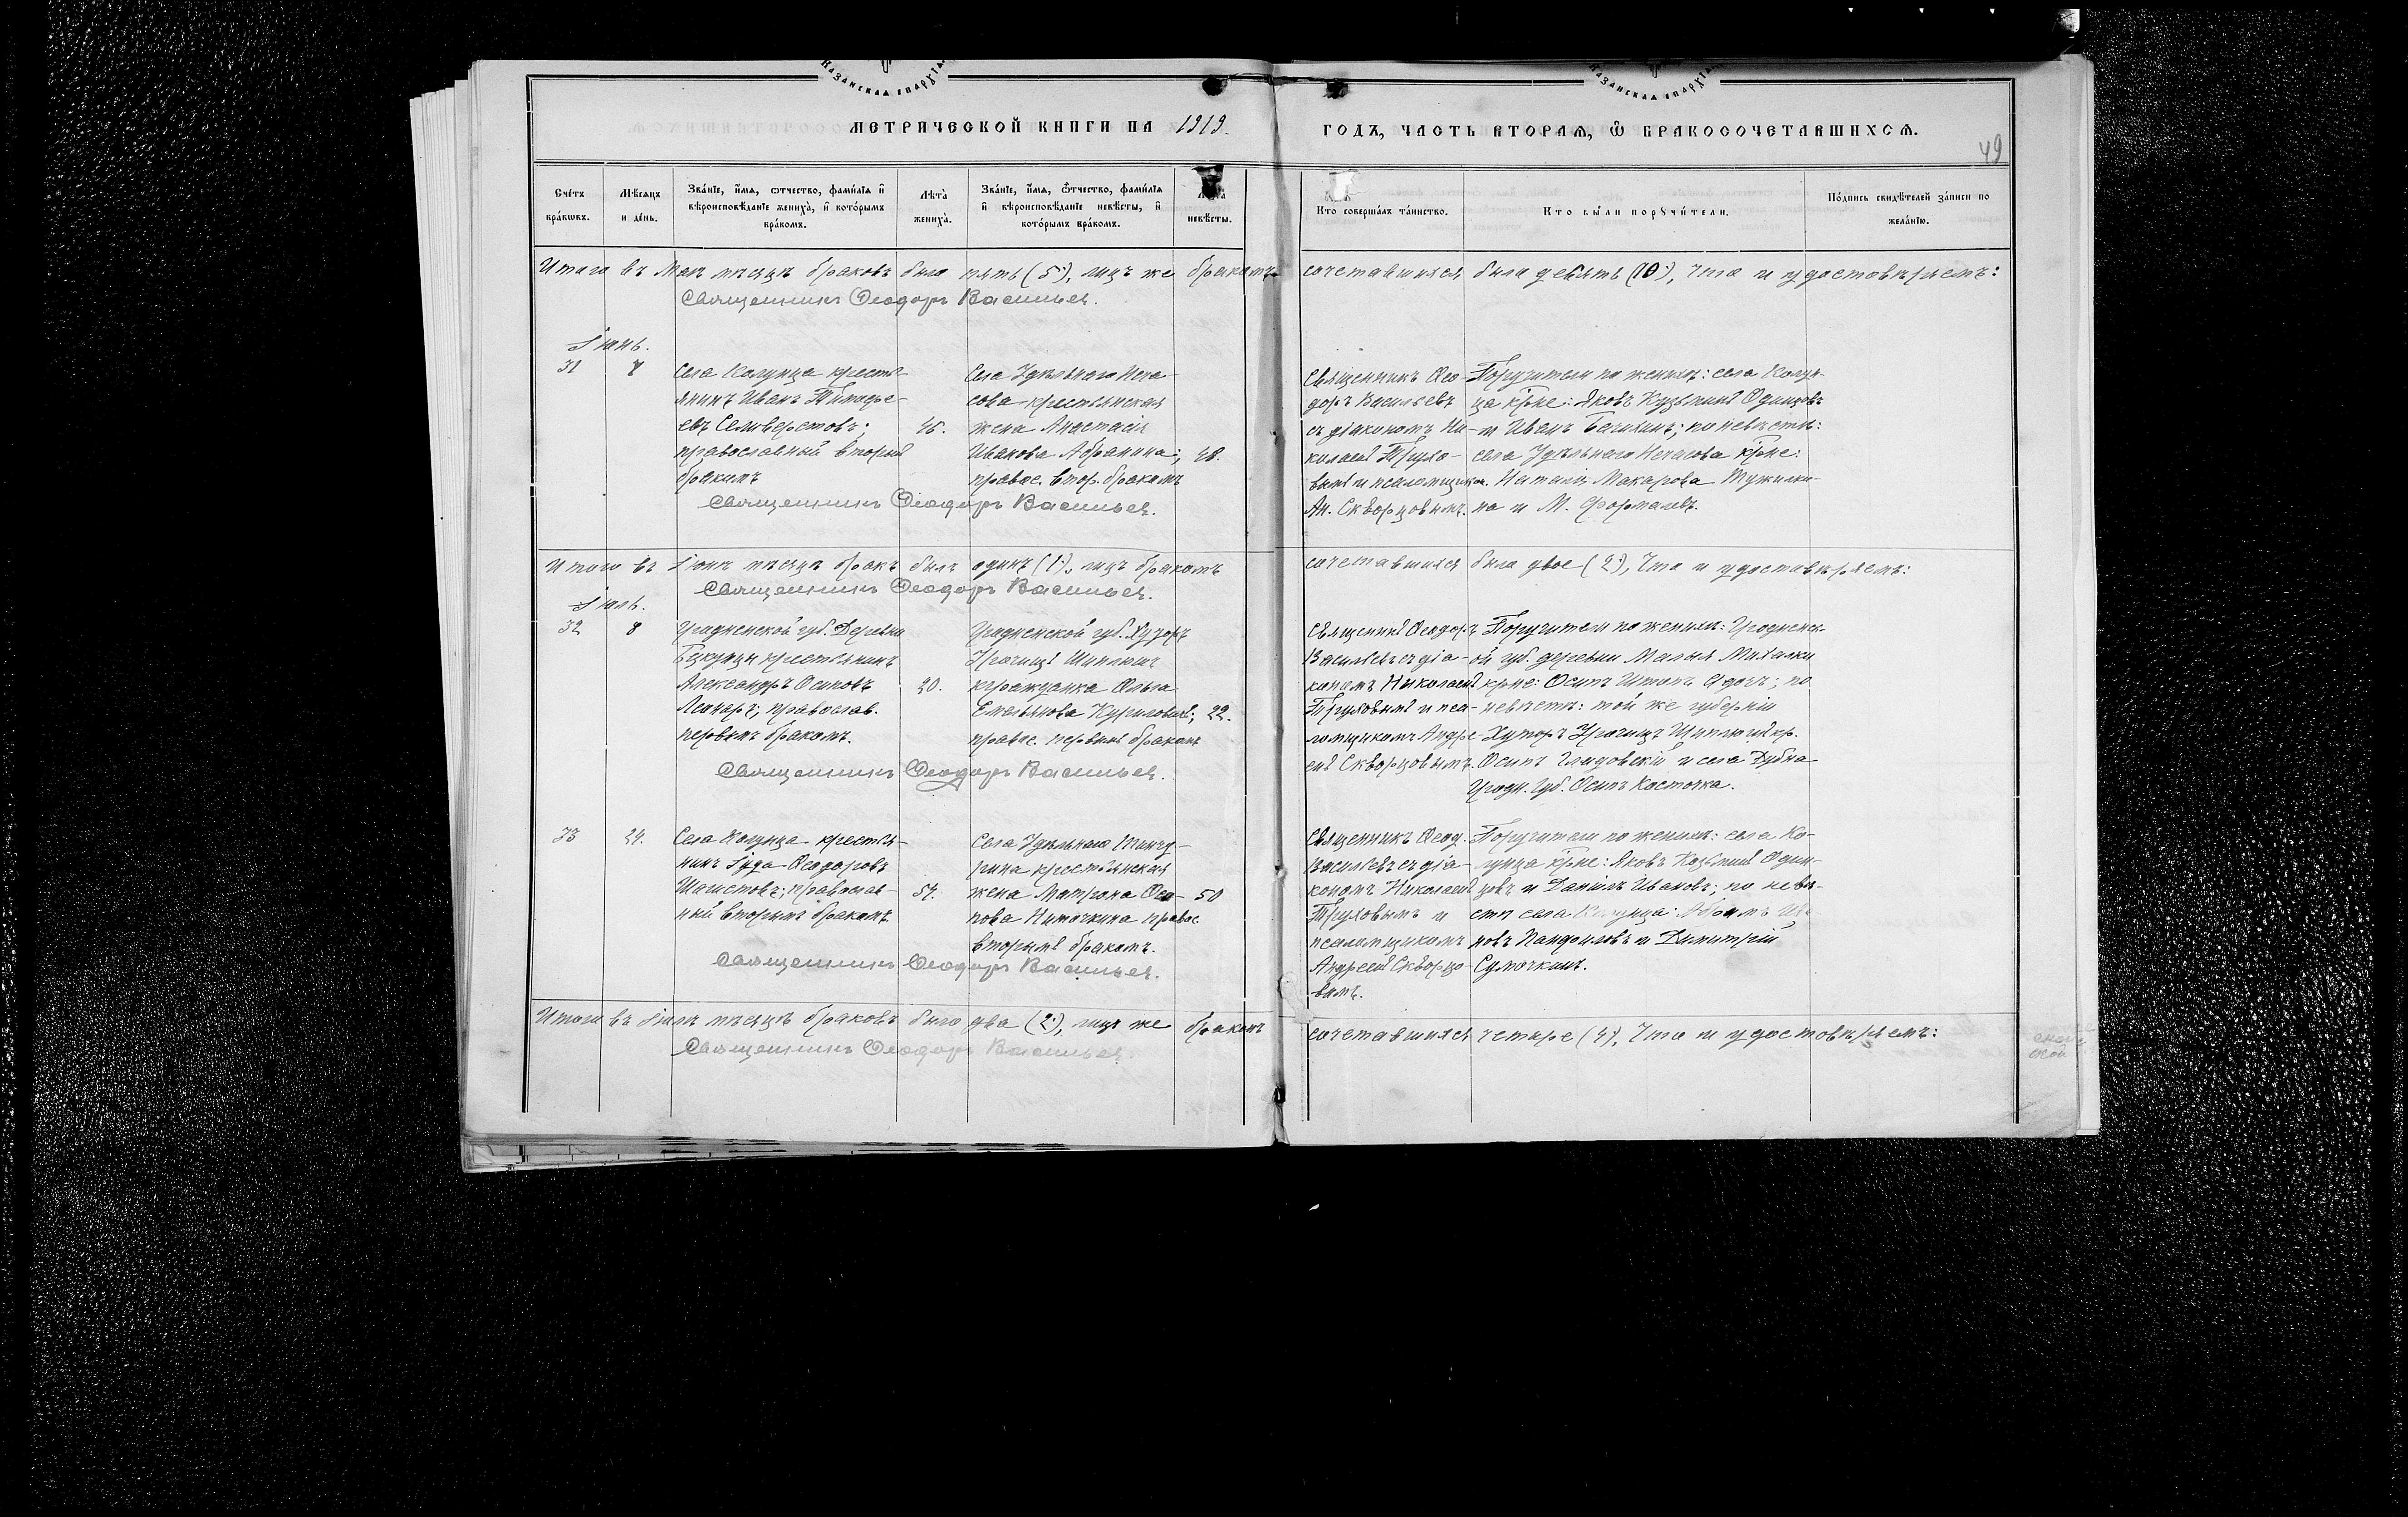 Казанская епархїа
Казанская епархїа
МЕТРИЧЕСКОЙ КНИГИ НА 1919. ГОДЪ, ЧАСТЬ ВТОРАѦ, Ѿ БРАКОСОЧЕТАВШИХСѦ.
49
Сче́тъ бра́кѡвъ.
Мѣ́сѧцъ и де́нь.
Зва́нїе, и҆́мѧ, ѻ҆́тчество, фами́лїѧ и҆ вѣроисповѣ́данїе жениха̀, и҆ кото́рымъ бра́комъ.
Лѣ̀та жениха̀.
Зва́нїе, и҆́мѧ, ѻ҆́тчество, фами́лїѧ и҆ вѣроисповѣ́данїе невѣ́сты, и҆ кото́рымъ бра́комъ.
невѣ́сты.
Кто соверша́лъ та́инство.
Кто бы́ли порꙋчи́тели.
По́дпись свидѣ́телей за́писи по жела́нїю.
Итого въ Маѣ мѣсяцѣ браковъ было пять (5), лицъ же бракомъ сочетавшихся было девять (10), Что и удостовѣряемъ:
Священникъ Ѳеодоръ Васильев.
Іюнь.
31
7
Села Колунца крестья-
нинъ Иванъ Тимофе-
евъ Селиверстовъ;
православный вторый
бракомъ
46.
Села Удѣльнаго Нека-
сова крестьянская
жена Анастасія
Иванова Абрамина;
правос. втор. бракомъ
48.
Священникъ Ѳео-
доръ Васильевъ
съ діакономъ Ни-
колаем Трухо-
вым и псаломщиком
Ан. Скворцовымъ.
Поручители по женихѣ: села Колун-
ца крне: Яковъ Кузьмин Одинцовъ
и Иванъ Багихинъ; по невѣстѣ:
села Удѣльнаго Некасова крне:
Наталія Макарова Тужилки-
на и М. Формалевъ.
Священникъ Ѳеодоръ Васильев.
Итого въ Іюнѣ мѣсяцѣ бракъ былъ одинъ (1), лицъ бракомъ сочетавшихся было двое (2), Что и удостовѣряемъ:
Священникъ Ѳеодоръ Васильев.
Іюль.
32
8
Гродненской губ. Деревни
крестьянинъ
Александръ Осиповъ
православ.
первымъ бракомъ.
20.
Гродненской губ. Хуторъ
гражданка Ольга
Емельянова
правос. первым бракомъ
22.
Священник Ѳеодоръ
Васильевъ съ діа-
кономъ Николаем
Труховым и пса-
ломщикомъ Андре-
ем Скворцовымъ.
Поручители по женихѣ: Гродненск-
ой губ. деревни Малыя Михалки
крне: Осипъ по
невѣстѣ: той же губерніи
Хуторъ кр.
Осипъ и села Дубна
Гродн. губ. Осипъ Косточка.
Священникъ Ѳеодоръ Васильев.
33
24.
Села Колунца крестья-
нинъ Іуда Ѳеодоровъ
православ-
ный вторымъ бракомъ.
54.
Села Удѣльнаго
крестьянская
жена Матрона Оси-
пова Ниточкина правос.
вторым бракомъ.
50
Священникъ Ѳеод.
Васильевъ съ діа-
кономъ Николаем
Труховымъ и
псаломщикомъ
Андреем Скворцо-
вымъ.
Поручители по женихѣ: села Ко-
лунца крне: Яковъ Козьмин Один-
цовъ и Даніилъ Ивановъ; по невѣ-
стѣ села Колунца: Абрамъ Ива-
новъ и Димитрій
Сумочкинъ.
Священникъ Ѳеодоръ Васильев.
Итого въ Іюлѣ мѣсяцѣ браковъ было два (2), лицъ же бракомъ сочетавшихся четыре (4), Что и удостовѣряемъ:
Священникъ Ѳеодоръ Васильев.